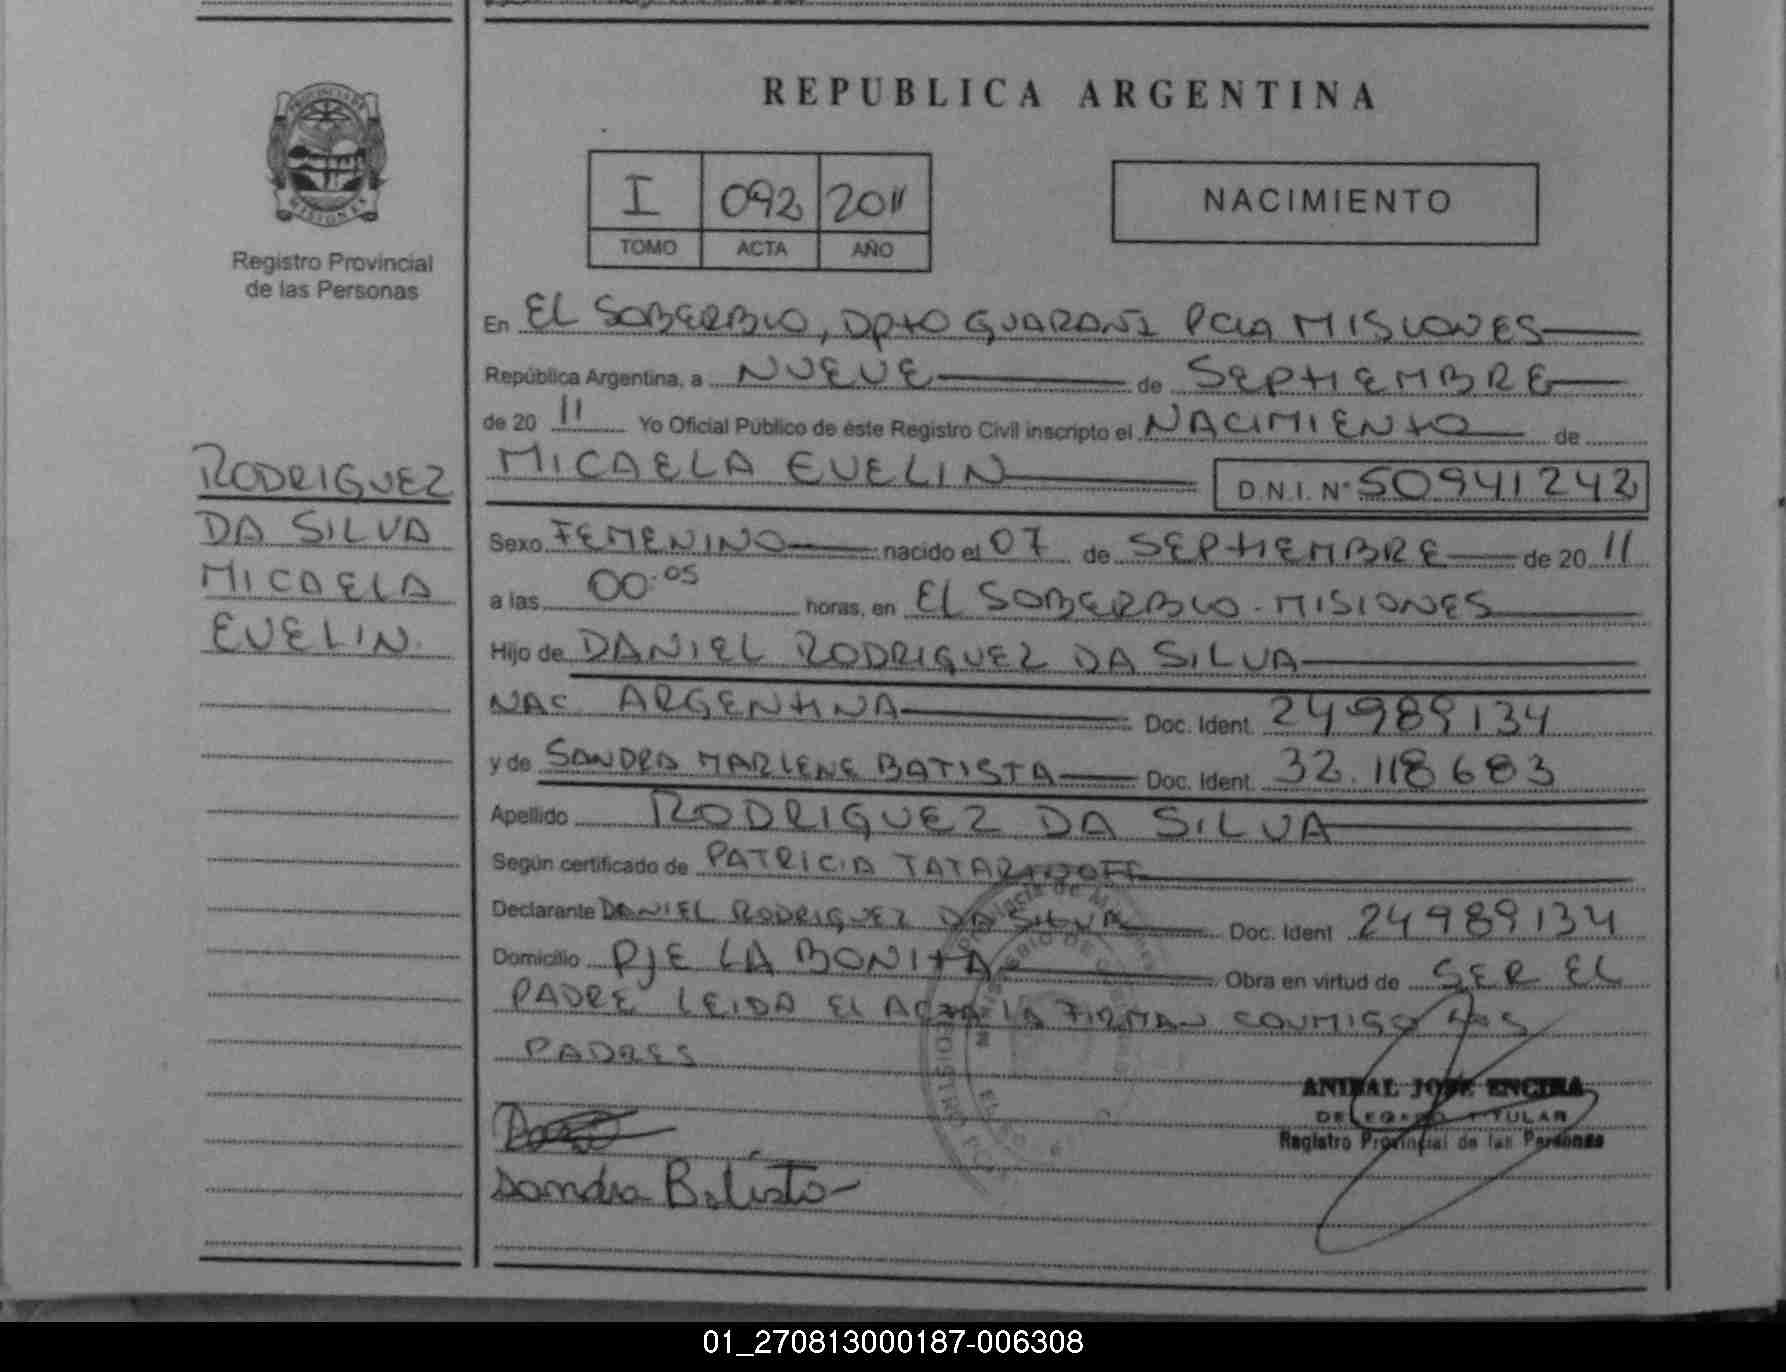 REPUBLICA ARGENTINA
PROVINCIA DE
MISIONES
Registro Provincial
de las Personas
I 092 2011
TOMO ACTA AÑO
NACIMIENTO
RODRIGUEZ
DA SILVA
MICAELA
EVELIN.
En EL SOBERBIO, Dpto GUARANI PCIA MISIONES
República Argentina, a NUEVE de SEPTIEMBRE
de 20 11 Yo Oficial Público de éste Registro Civil inscripto el NACIMIENTO de
MICAELA EVELIN D.N.I. Nº 50941242
Sexo FEMENINO nacido el 07 de SEPTIEMBRE de 20 11
a las 00.05 horas, en EL SOBERBIO - MISIONES
Hijo de DANIEL RODRIGUEZ DA SILVA
NAC ARGENTINA Doc. Ident. 24989134
y de SANDRA MARLENE BATISTA Doc. Ident. 32.118683
Apellido RODRIGUEZ DA SILVA
Según certificado de PATRICIA
Declarante DANIEL RODRIGUEZ DA SILVA Doc. Ident 24989134
Domicilio PJE LA BONITA Obra en virtud de SER EL
PADRE LEIDA EL ACTA LA FIRMAN CONMIGO LOS
PADRES
ANIBAL JOSE ENCINA
DELEGADO TITULAR
Registro Provincial de las Personas
Sandra Batista
01_270813000187-006308